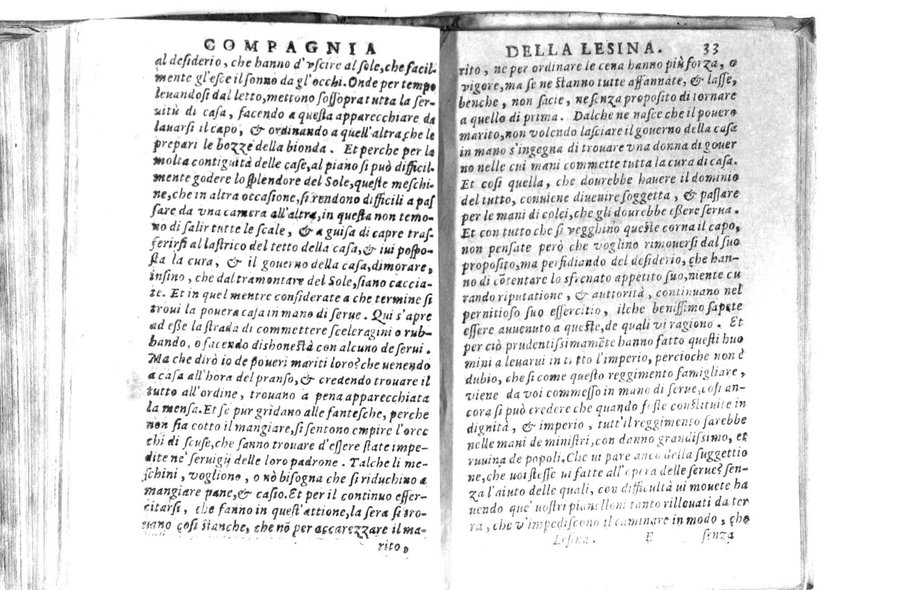 COMPAGNIA
al desiderio, che hanno d'vscire al sole, che facil-
mente gl'esce il sonno da gl'occhi. Onde per tempo
leuandosi dal letto, mettono sossopra tutta la ser-
uitù di casa, facendo a questa apparecchiare da
lauarsi il capo, & ordinando a quell'altra, che le
prepari le bozze della bionda. Et perche per la
molta contiguità delle case, al piano si può difficil-
mente godere lo splendore del Sole, queste meschi-
ne, che in altra occasione, si rendono difficili a pas
sare da vna camera all'altra, in questa non temo-
no di salir tutte le scale, & a guisa di capre tras-
ferirsi al lastrico del tetto della casa, & iui pospo-
sta la cura, & il gouerno della casa, dimorare,
insino, che dal tramontare del Sole, siano caccia-
te. Et in quel mentre considerate a che termine si
troui la pouera casa in mano di serue. Qui s'apre
ad esse la strada di commettere sceleragini o rub-
bando, o facendo dishonestà con alcuno de serui.
Ma che dirò io de poueri mariti loro? che venendo
a casa all'hora del pranso, & credendo trouare il
tutto all'ordine, trouano a pena apparecchiata
la mensa. Et se pur gridano alle fantesche, perche
non sia cotto il mangiare, si sentono empire l'orec
chi di scuse, che sanno trouare d'essere state impe-
dite ne' seruigij delle loro padrone. Talche li me-
schini, vogliono, o nò bisogna che si riduchino a
mangiare pane, & casio. Et per il continuo esser-
citarsi, che fanno in quest'attione, la sera si tro-
uano così stanche, che nõ per accarezzare il ma-
rito,
DELLA LESINA. 33
rito, ne per ordinare le cena hanno più forza, o
vigore, ma se ne stanno tutte affannate, & lasse,
benche, non sacie, ne senza proposito di tornare
a quello di prima. Dalche ne nasce che il pouero
marito, non volendo lasciare il gouerno della casa
in mano s'ingegna di trouare vna donna di gouer
no nelle cui mani commette tutta la cura di casa.
Et così quella, che dourebbe hauere il dominio
del tutto, conuiene diuenire soggetta, & passare
per le mani di colei, che gli dourebbe essere serua.
Et con tutto che si vegghino queste corna il capo,
non pensate però che voglino rimouersi dal suo
proposito, ma perfidiando del desiderio, che han-
no di cõtentare lo sfrenato appetito suo, niente cu
rando riputatione, & auttorità, continuano nel
pernitioso suo essercitio, ilche benissimo sapete
essere auuenuto a queste, de quali vi ragiono. Et
per ciò prudentissimamẽte hanno fatto questi huo
mini a leuarui in tutto l'imperio, percioche non è
dubio, che si come questo reggimento famigliare,
viene da voi commesso in mano di serue, così an-
cora si può credere che quando foste constituite in
dignità, & imperio, tutt'il reggimento sarebbe
nelle mani de ministri, con danno grandissimo, et
ruuina de popoli. Che vi pare anco della suggettio
ne, che uoi stesse ui fatte all'opera delle serue? sen-
za l'aiuto delle quali, con difficultà ui mouete ha
uendo que' uostri pianelloni tanto rilleuati da ter
ra, che v'impediscono il caminare in modo, che
Lesina. E senza